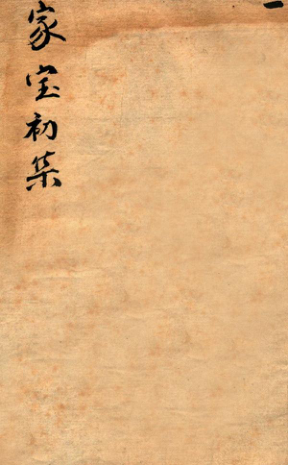 一
家宝初集